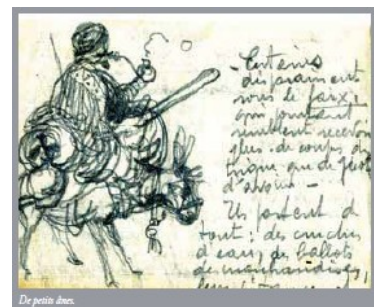 - Certains
disparaissent
sous le faix,
qui pourtant
semblent recevoir
plus de coups de
trique que de
d'avoine -
Ils portent de
tout : des cruches
d'eau, des ballots
de marchandises,
De petits ânes.